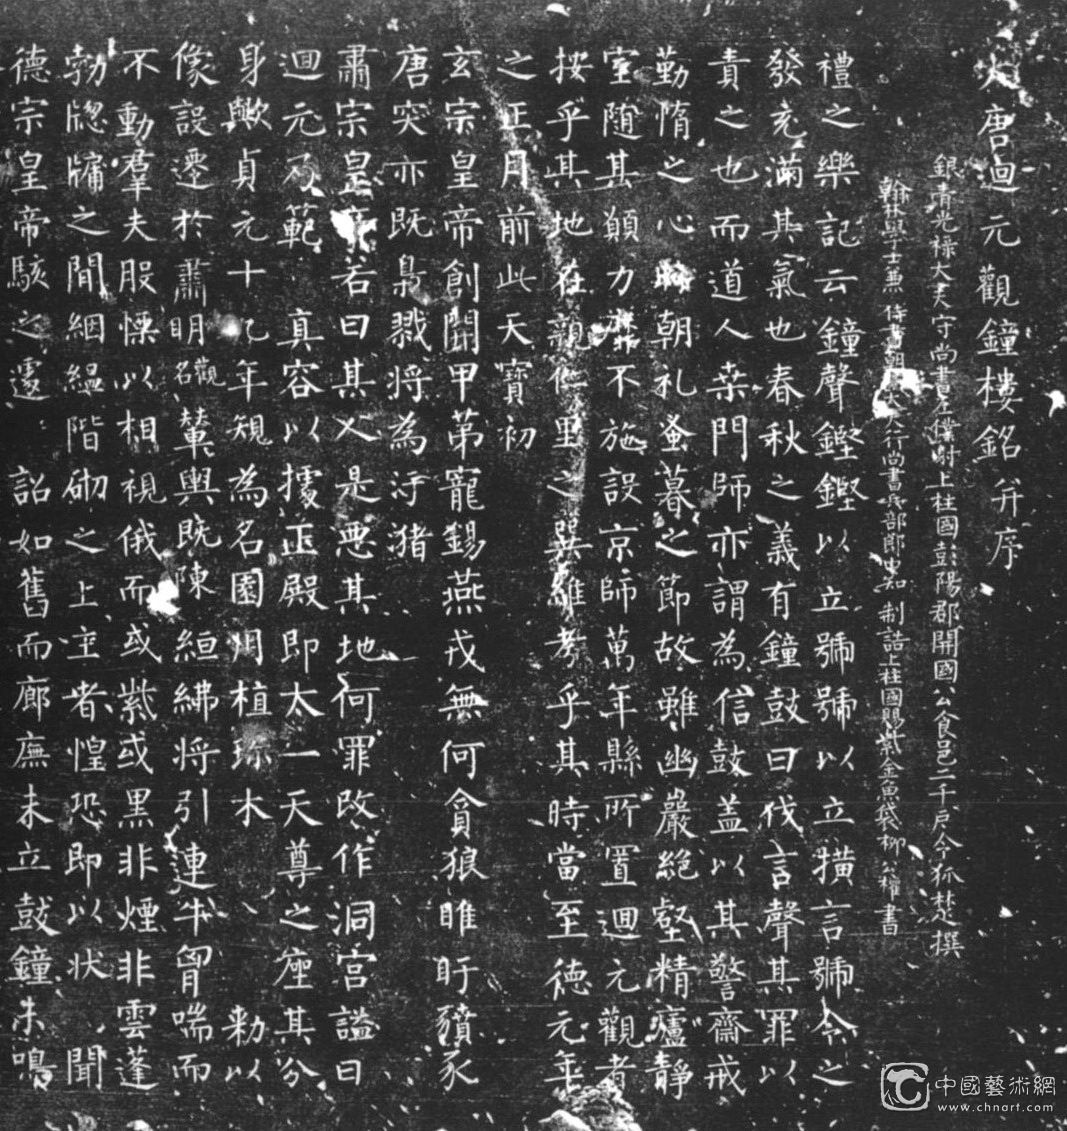 大唐迴元觀鐘樓銘并序
銀青光祿大夫守尚書左僕射上柱國彭陽郡開國公食邑二千戶令狐楚撰
翰林學士兼侍書朝大夫行尚書兵部郎中知制誥上柱國賜紫金魚袋柳公權書
禮之樂記云鐘聲鏗鏗以立號號以立橫言號令之
發充滿其氣也春秋之義有鐘鼓曰伐言聲其罪以
責之也而道人桒門師亦謂為信鼓盖以其警齋戒
勤惰之心時朝礼蚤暮之節故雖幽嚴絕壑精廬靜
室隨其願力靡不施設京師萬年縣所置迴元觀者
按乎其地在親仁里之巽維考乎其時當至德元年
之正月前此天寶初
玄宗皇帝創開甲第寵錫燕戎無何貪狼睢盱豶豕
唐突亦既梟戮將為污猪
肅宗皇帝若曰其人是惡其地何罪改作洞宮謚曰
迴元乃範 真容以據正殿即太一天尊之座其分
身歟貞元十九年規為名園用植珎木 勑以
像設遷於肅明觀名輦輿既陳絙紼將引連牛胷喘而
不動羣夫股慄以相視俄而或紫或黑非煙非雲蓬
勃窻牖之間絪縕階砌之上主者惶恐即以狀 聞
德宗皇帝駭之遽 詔如舊而廊廡未立鼓鐘未鳴
中國藝術網
www.chnart.com